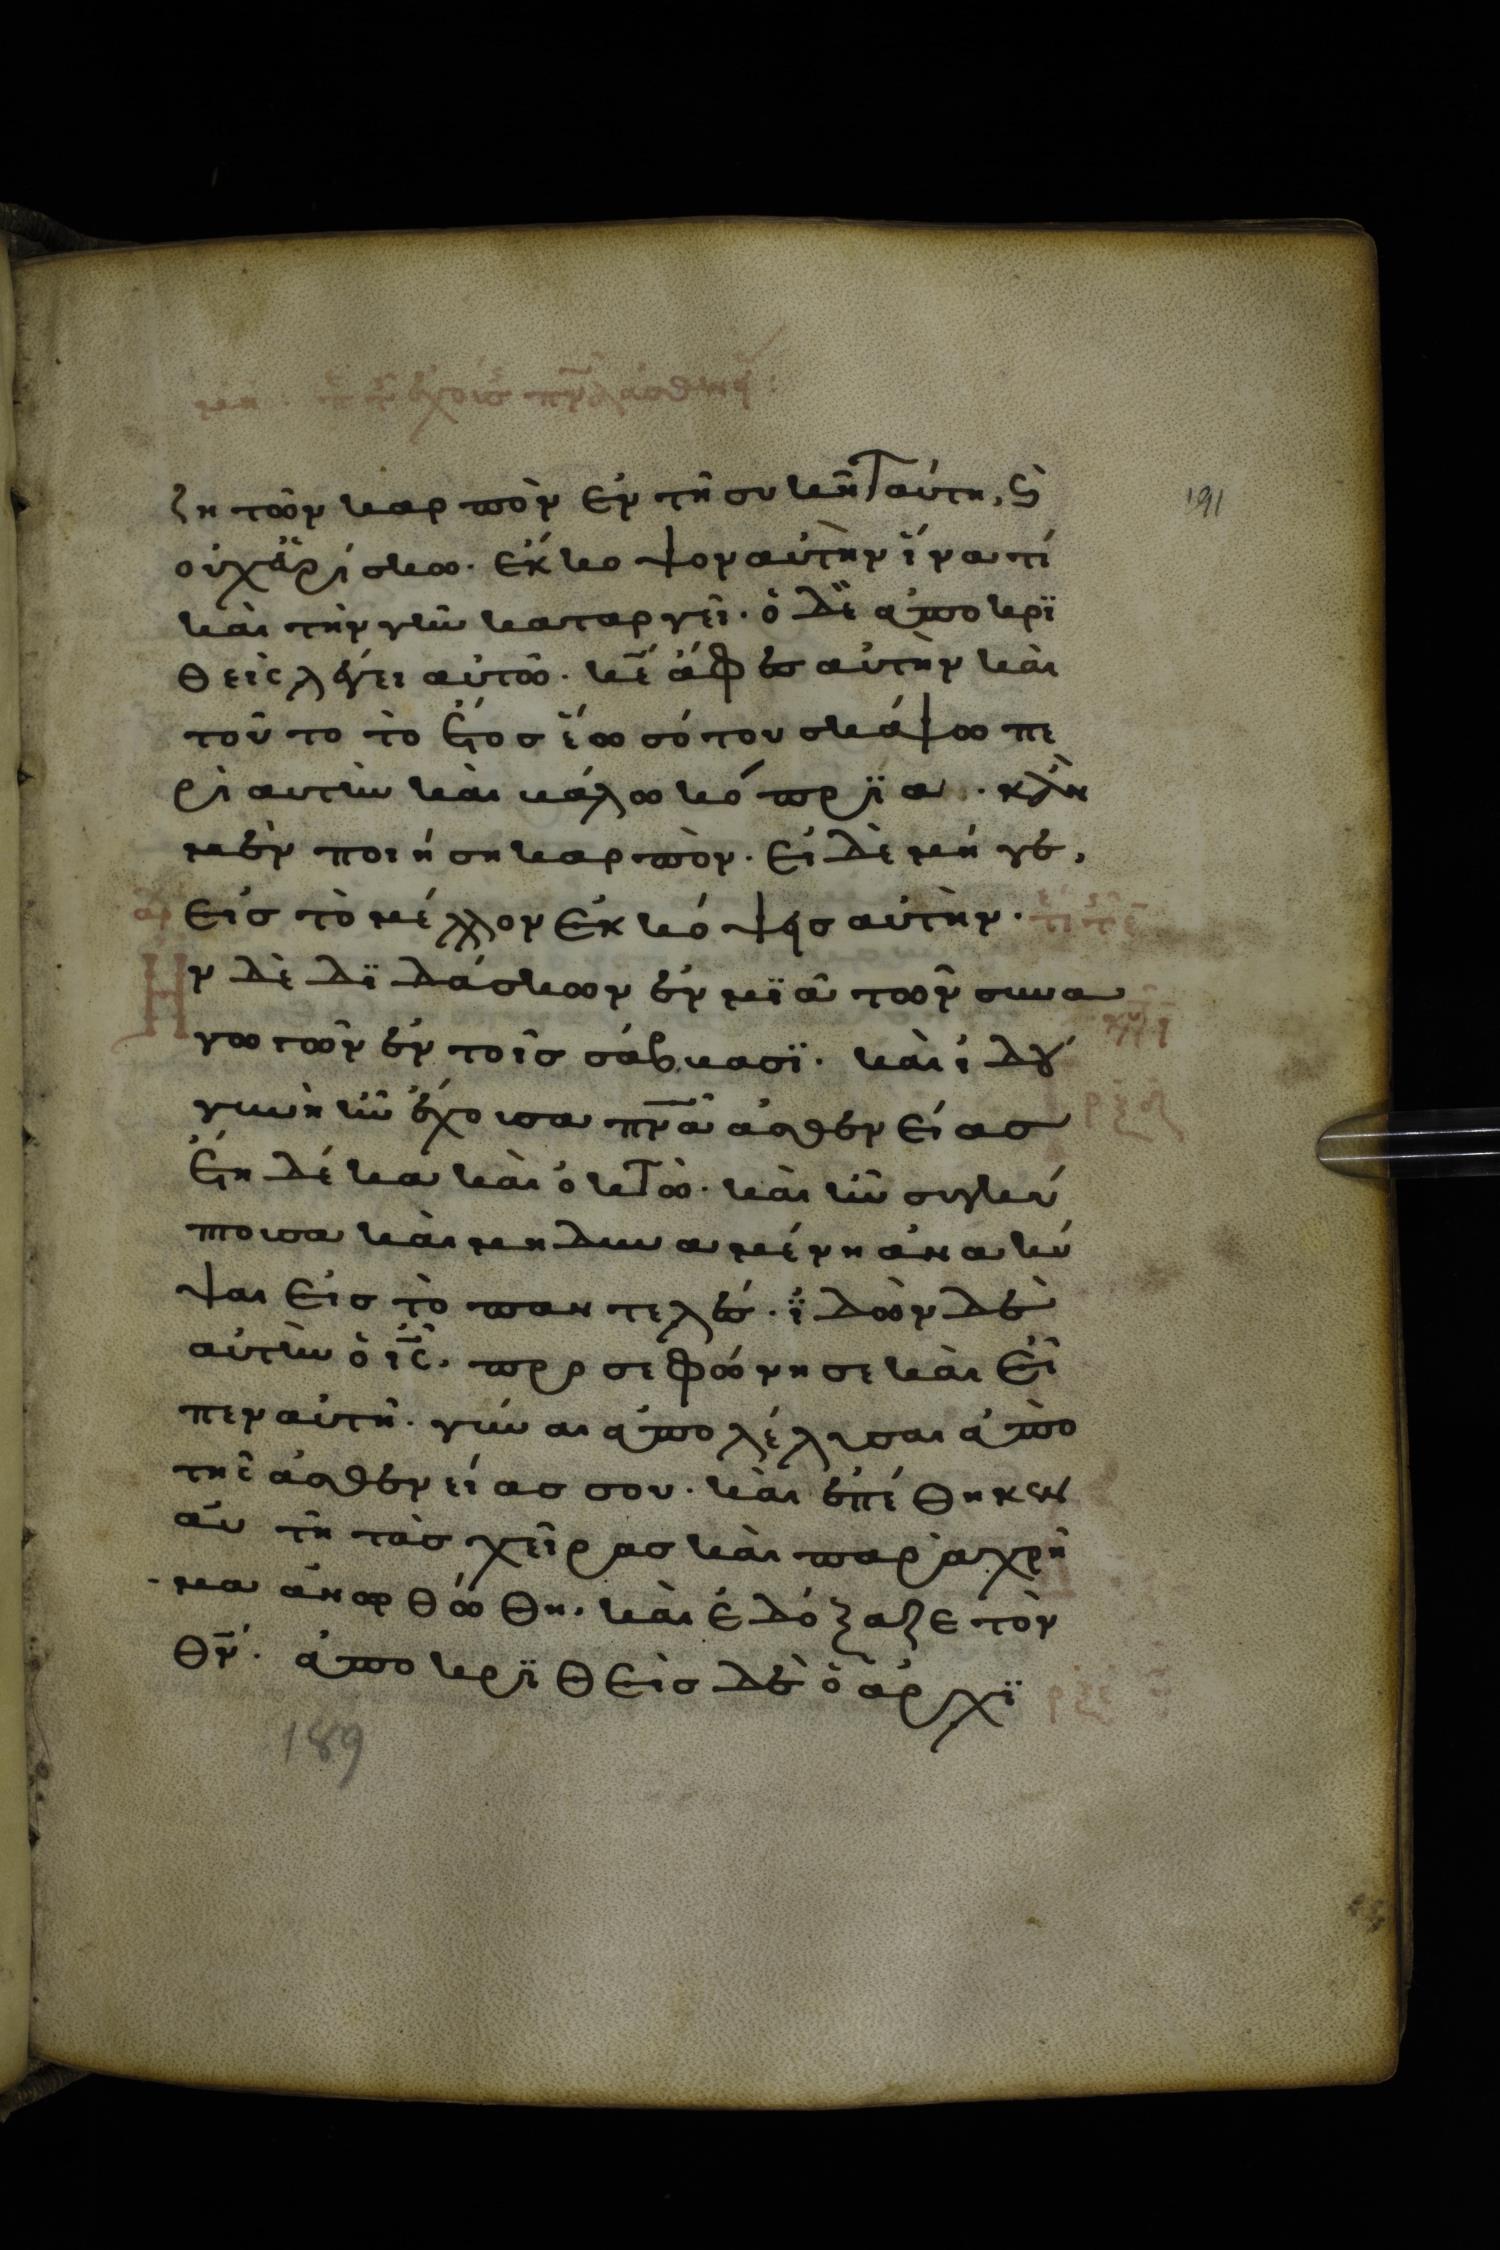 ζητῶν καρπὸν ἐν τῆ συκῆ ταύτη, ϗ
οὐχ ἑυρίσκω. ἔκκοψον αὐτὴν ἵνατί
καὶ τὴν γῆν καταργεῖ. ὁ δὲ ἀποκρϊ
θεὶς λέγει αὐτῶ. κ̅ε̅ ἄφες αὐτὴν καὶ
τοῦτο τὸ ἔτος ἕως ὅτου σκάψω πε
ρὶ αυτὴν καὶ βάλω κόπρϊα. κἂν
μὲν ποιήση καρπὸν. εἰ δὲ μήγε,
εἰς τὸ μέλλον ἐκκόψεις αὐτὴν.
Ην δὲ δϊδάσκων ἐν μϊᾶ τῶν συνα
γωγῶν ἐν τοῖς σάββασϊ. καὶ ἰδοὺ
γυνὴ ἦν ἔχουσα π̅ν̅α̅ ἀσθενείας
ἔτη δέκα καὶ ὀκτὼ. καὶ ἦν συγκύ
πτουσα καὶ μὴ δυναμένη ἀνακύ
ψαι εἰς τὸ παντελὲς. ἰδὼν δὲ
αὐτὴν ὁ ι̅ς̅. προσεφώνησε καὶ εἶ
πεν αὐτῆ. γύναι ἀπολέλυσαι ἀπὸ
τῆς ἀσθενείας σου. καὶ ἐπέθηκεν
αὐτῆ τὰς χεῖρας καὶ παραχρῆ
μα ἀνωρθώθη. καὶ ἐδόξαζε τὸν
θ̅ν̅. ἀποκρϊθεὶς δὲ ὁ ἀρχϊ
191
189